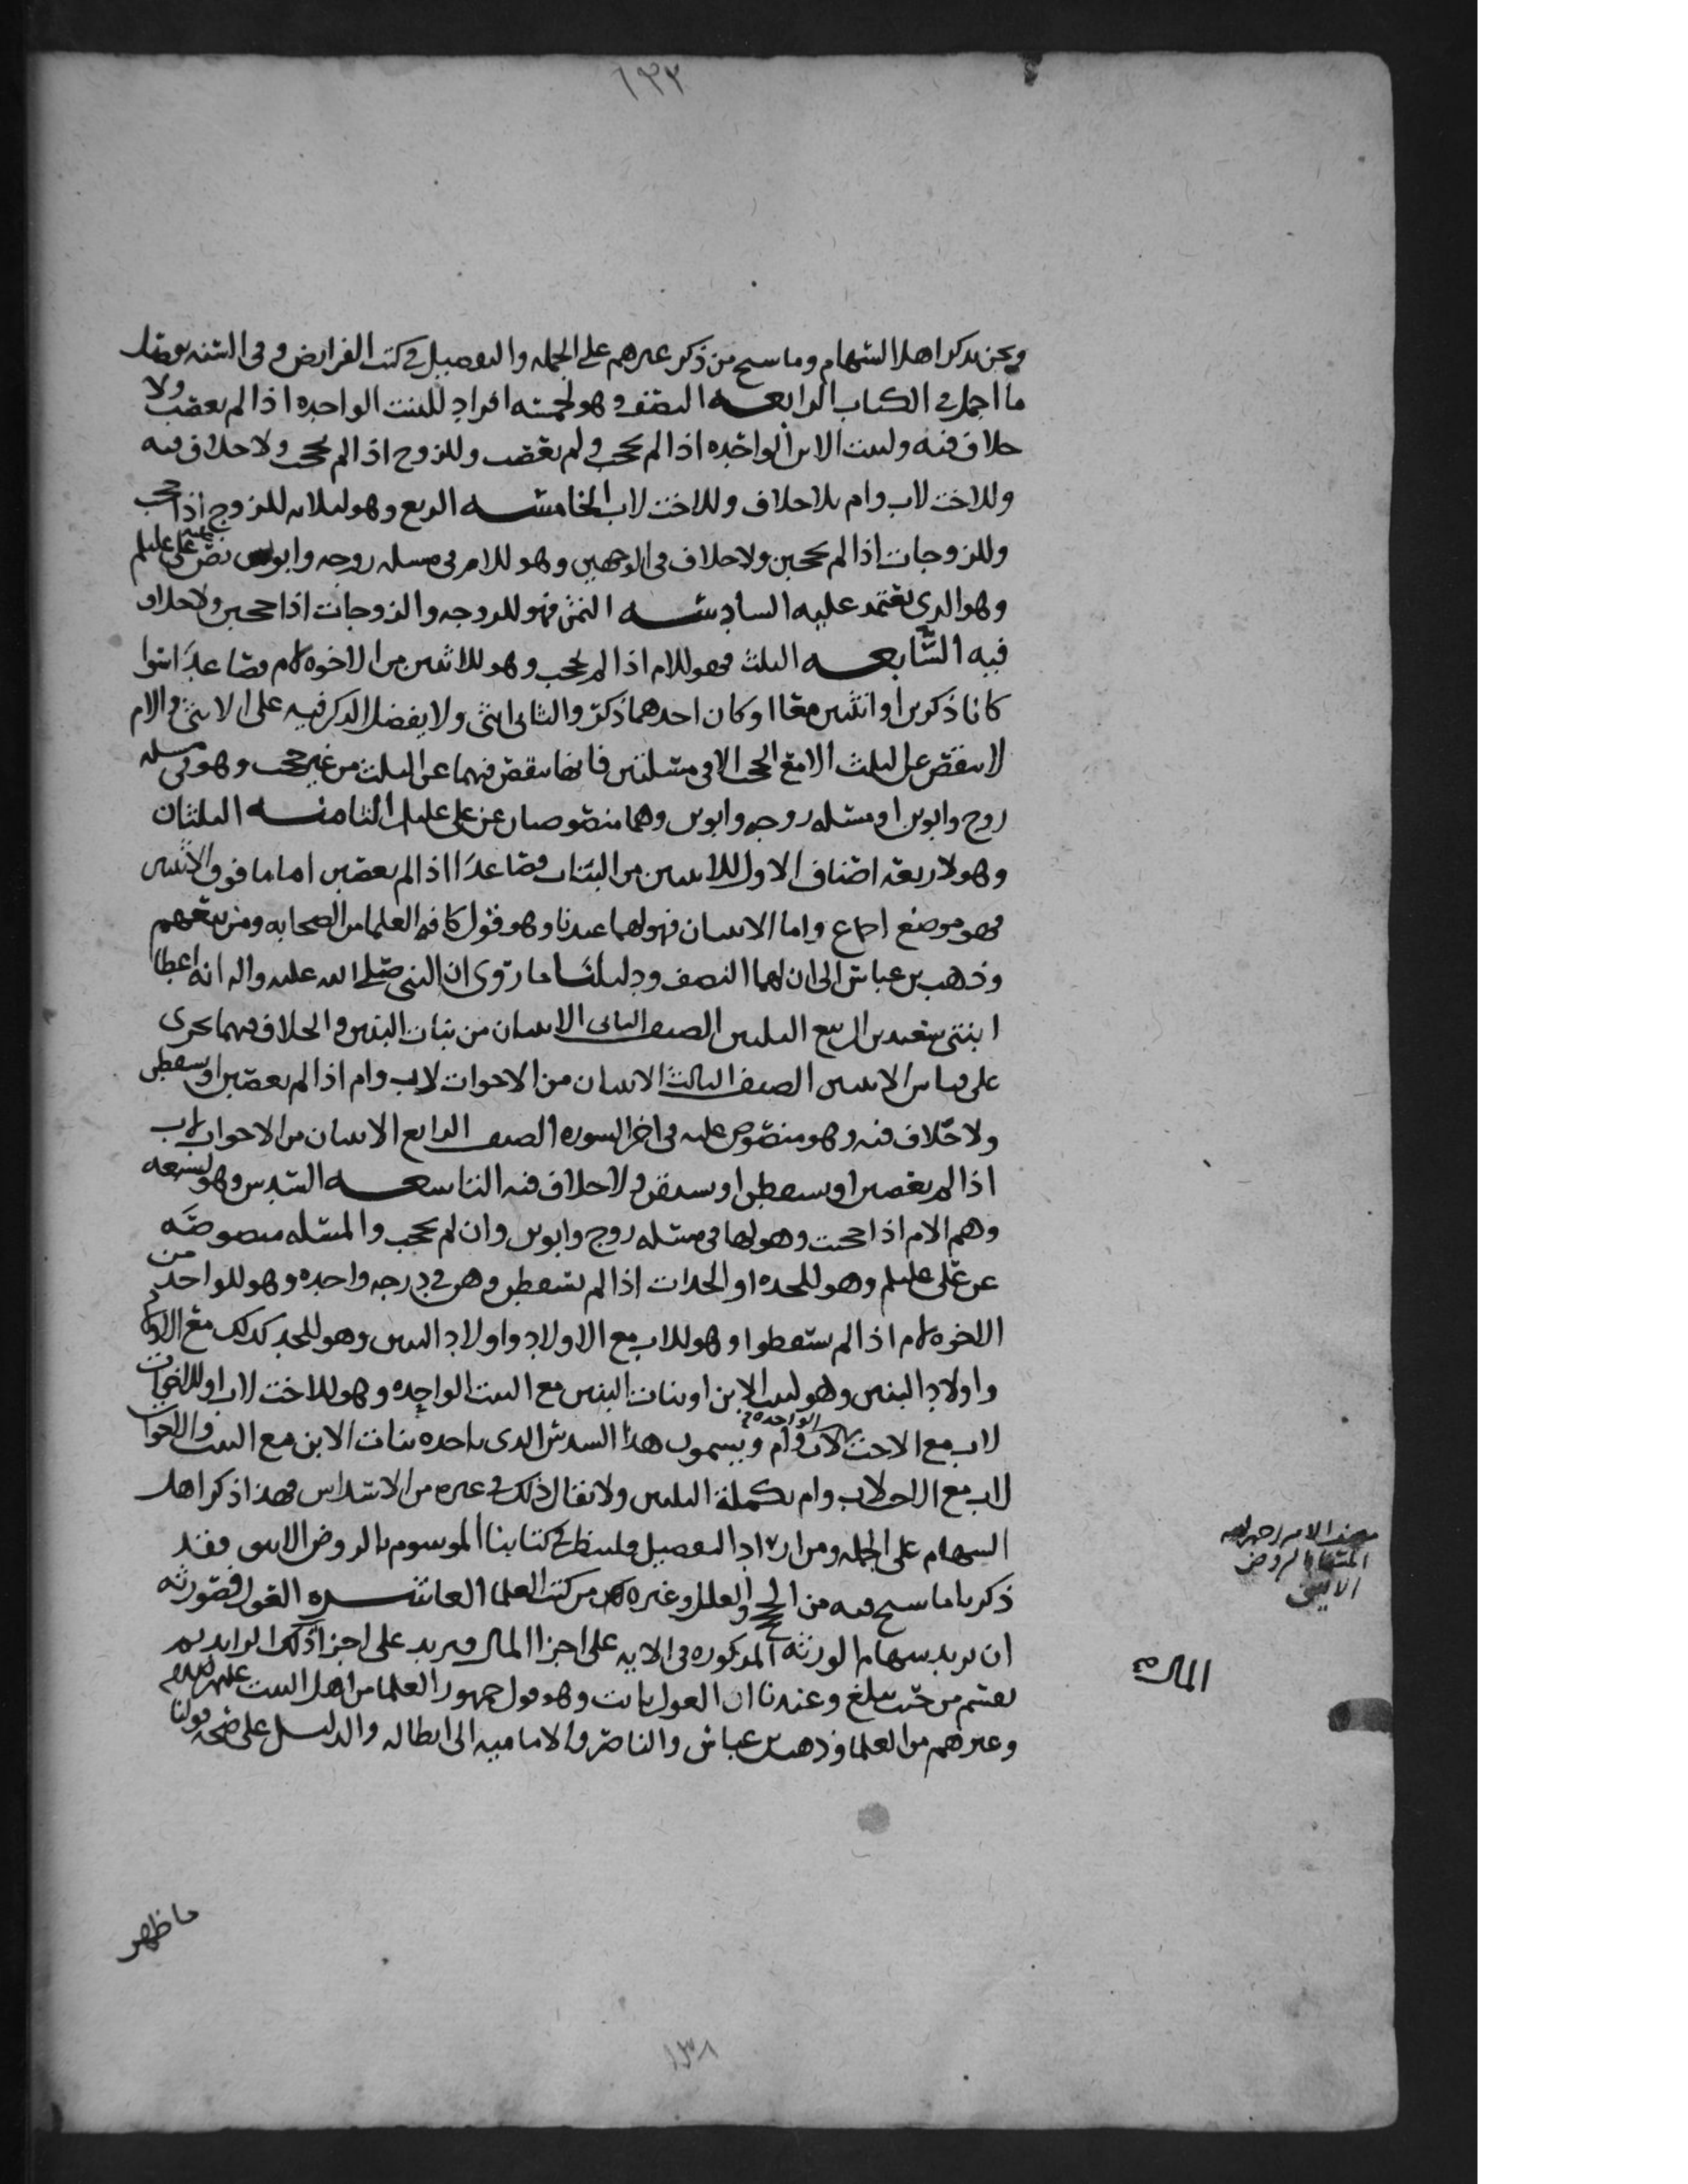 ١٣٣
ونحن نذكر اهل السهام وما سنح من ذكر غيرهم على الجمله والتفصيل في كتب الفرايض وفي السنه
ما اجمل في الكتاب الرابعه النصف وهو لخمسه افراد للبنت الواحده اذا لم تعصب ولا
خلاف فيه ولبنت الابن الواحده اذا لم تحجب ولم تعصب وللزوج اذا لم يحجب ولا خلاف فيه
وللاخت لاب وام بلا خلاف وللاخت لاب الخامسه الربع وهو لثلاثه للزوج اذا حجب
وللزوجات اذا لم يحجبن ولا خلاف في الوجهين وهو للام في مسله زوجه وابوين نص عليه علي عليلم
وهو الذي نعتمد عليه السادسه الثمن فهو للزوجه والزوجات اذا حجبن ولا خلاف
فيه السابعه الثلث فهو للام اذا لم تحجب وهو للاثنين من الاخوه لام فصاعدا استوا
كانا ذكرين او انثيين معا او كان احدهما ذكر والثاني انثى ولا يفضل الذكر فيه على الانثى والام
لا تنقص عن الثلث الا مع الحجب الا في مسئلتين فانها تنقص فيهما عن الثلث من غير حجب وهو في مسله
زوج وابوين او مسئله زوجه وابوين وهما منصوصان عن علي عليلم الثامنه الثلثان
وهو لاربعه اصناف الاول للاثنين من البنات فصاعدا اذا لم يعصبن اما ما فوق الاثنتين
فهو موضع اجماع واما الاثنتان فهو لهما عندنا وهو قول كافه العلما من الصحابه ومن تبعهم
وذهب بن عباس الى ان لهما النصف ودليلنا ما روى ان النبي صلى الله عليه واله انه اعطا
ابنتي سعد بن الربيع الثلثين الصنف الثاني الاثنتان من بنات البنين والخلاف فيهما يجرى
على قياس الاثنتين الصنف الثالث الاثنتان من الاخوات لاب وام اذا لم يعصبن او يسقطن
ولا خلاف فيه وهو منصوص عليه في اخر السوره الصنف الرابع الاثنتان من الاخوات لاب
اذا لم يعصبن او يسقطن او يسدسن ولا خلاف فيه التاسعه السدس وهو لسبعه
وهم الام اذا حجبت وهو لها في مسئله زوج وابوين وان لم تحجب والمسئله منصوصه
عن علي عليلم وهو للجده او الجدات اذا لم يسقطن وهن في درجه واحده وهو للواحد من
الاخوه لام اذا لم يسقطوا وهو للاب مع الاولاد واولاد البنين وهو للجد كذلك مع الاولاد
واولاد البنين وهو لبنت الابن او بنات البنين مع البنت الواحده وهو للاخت لاب او للاخوات
لاب مع الاخت الواحده لاب وام ويسمون هذا السدس الذي ياخذه بنات الابن مع البنت والاخوات
لاب مع الاخت لاب وام تكملة الثلثين ولا يقال ذلك في غيره من الاسداس فهذا ذكر اهل
السهام على الجمله ومن اراد التفصيل فلينظر في كتابنا الموسوم بالروض الانيق فقد
ذكرنا ما سنح فيه من الحجج والعلل وغيره من كتب العلما العاشره العول فصورته
ان تزيد سهام الورثه المذكوره في الايه على اجزا المال فيزيد على اجزا ذلك الزايد ثم
يقسم من حيث يبلغ وعندنا ان العول ثابت وهو قول جمهور العلما من اهل البيت عليهم السلام
وغيرهم من العلما وذهب بن عباس والناصر والاماميه الى ابطاله والدليل على صحه قولنا
مصنف الامير رحمه الله
المسما بالروض
الانيق
المال
ما ظهر
١٣٨